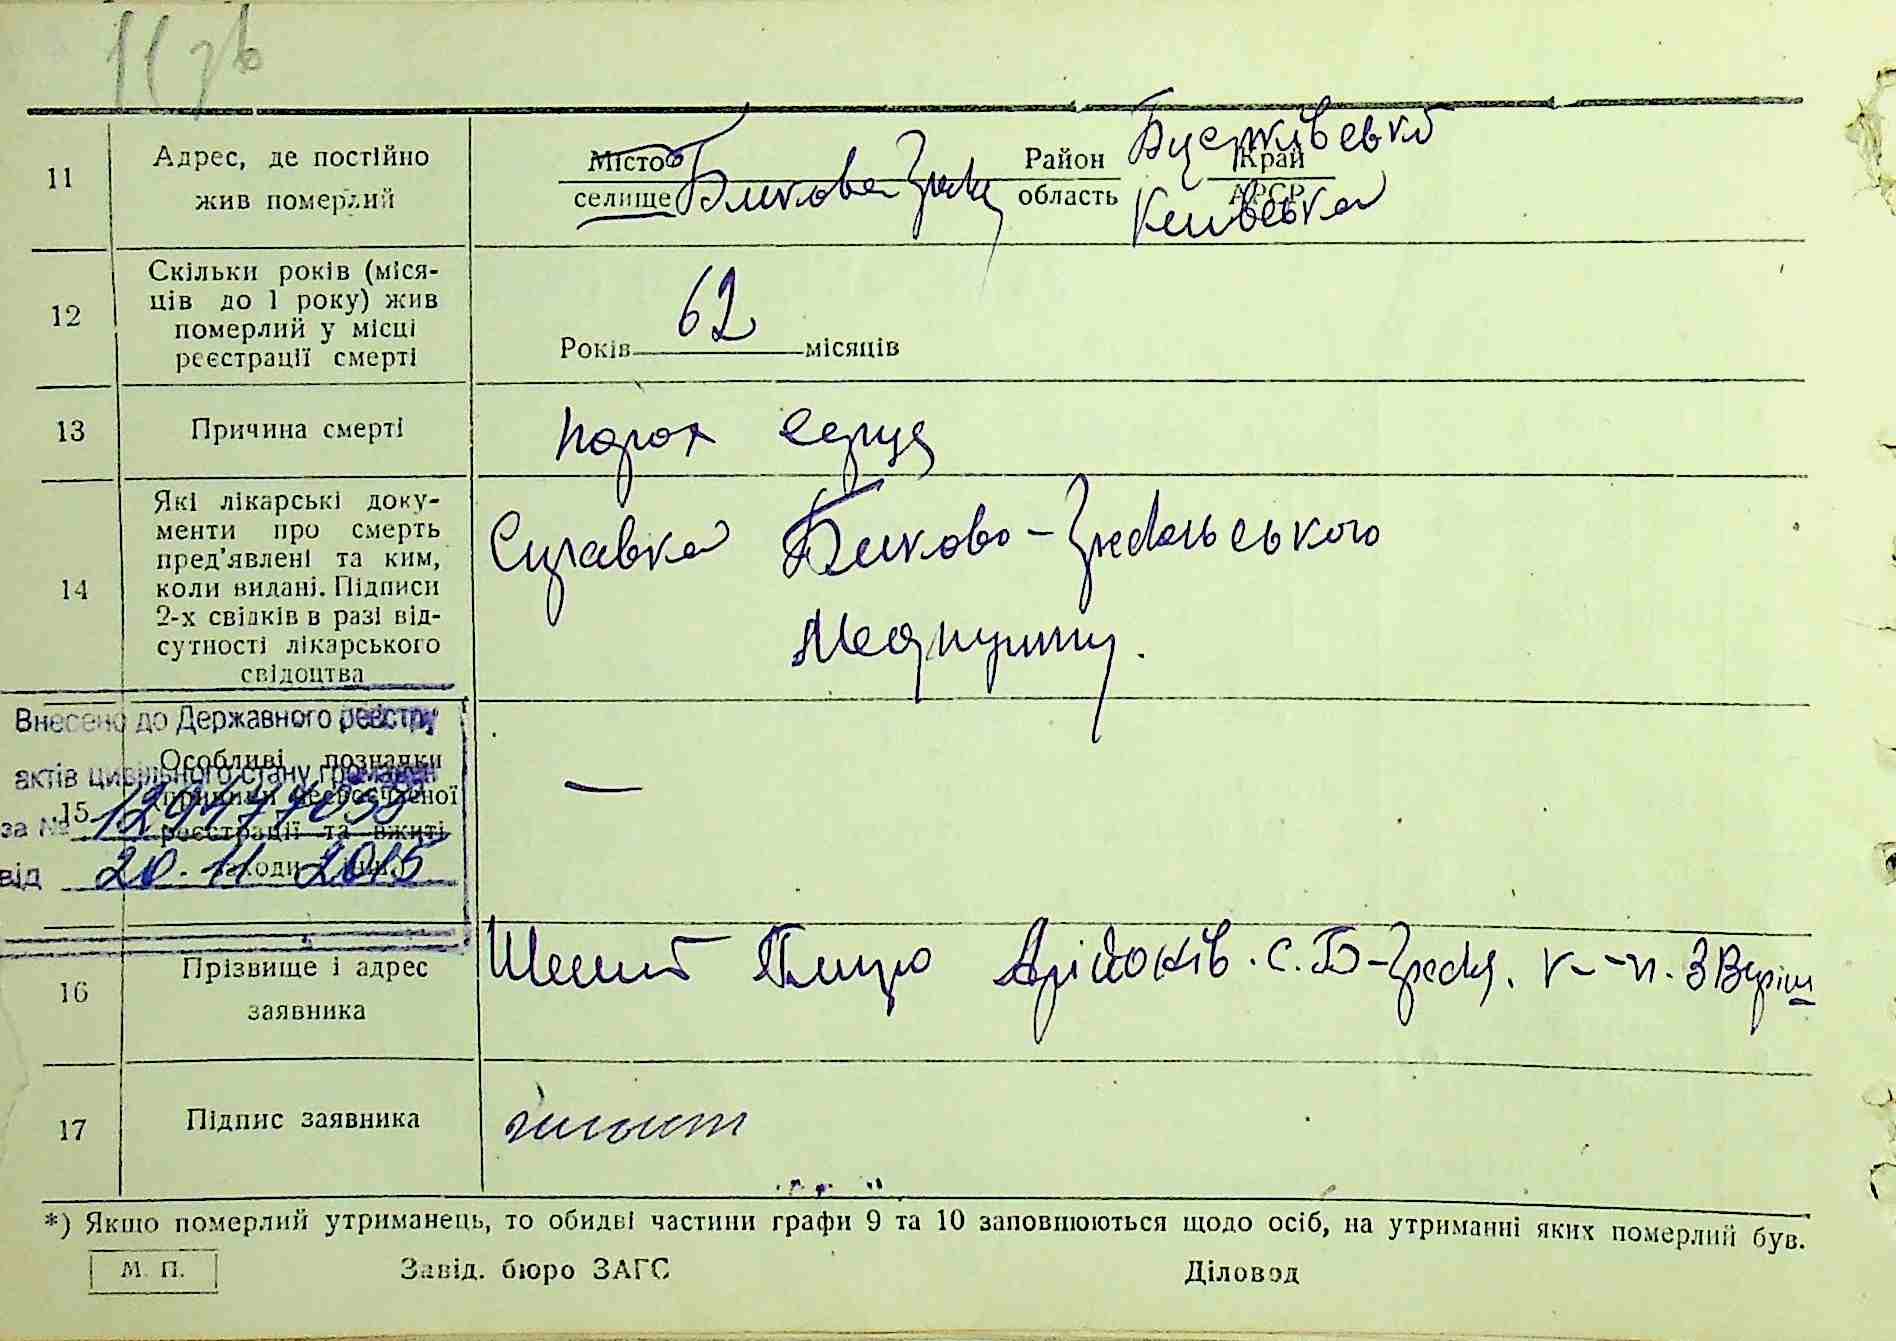 11 зв
11
Адрес, де постійно
жив померлий
Місто
селище
Бикова Гребля
Район
область
Київська
Край
АРСР
12
Скільки років (міся-
ців до 1 року) жив
померлий у місці
реєстрації смерті
Років 62 місяців
13
Причина смерті
порох серця
14
Які лікарські доку-
менти про смерть
пред'явлені та ким,
коли видані. Підписи
2-х свідків в разі від-
сутності лікарського
свідоцтва
Справка Биково-Гребельського
Медпункту.
Внесено до Державного реєстру
актів цивільного стану громадян
за №
від 20.11 2015
15
Особливі познадки
реєстрації та вжиті
—
16
Прізвище і адрес
заявника
с. Б-Гребля. к-п.
17
Підпис заявника
*) Якщо померлий утриманець, то обидві частини графи 9 та 10 заповнюються щодо осіб, на утриманні яких померлий був.
М. П.
Завід. бюро ЗАГС
Діловод